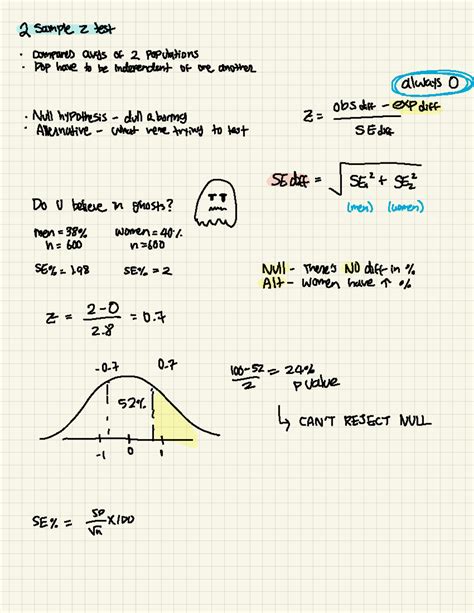 2 Sample z test
• Compares avgs of 2 populations
• Pop have to be independent of one another
always 0
• Null hypothesis - dull & boring
• Alternative - what we're trying to test
Z = obs diff - exp diff / SE diff
SE diff = √ SE₁² + SE₂²
(men) (women)
Do U believe in ghosts?
men = 38% women = 40%
n = 600 n = 600
SE% = 1.98 SE% = 2
Null - There's NO diff in %
Alt - Women have ↑ %
Z = 2-0 / 2.8 = 0.7
-0.7 0.7
52%
-1 0 1
100-52 / 2 = 24%
P value
↳ CAN'T REJECT NULL
SE% = SD / √n X100